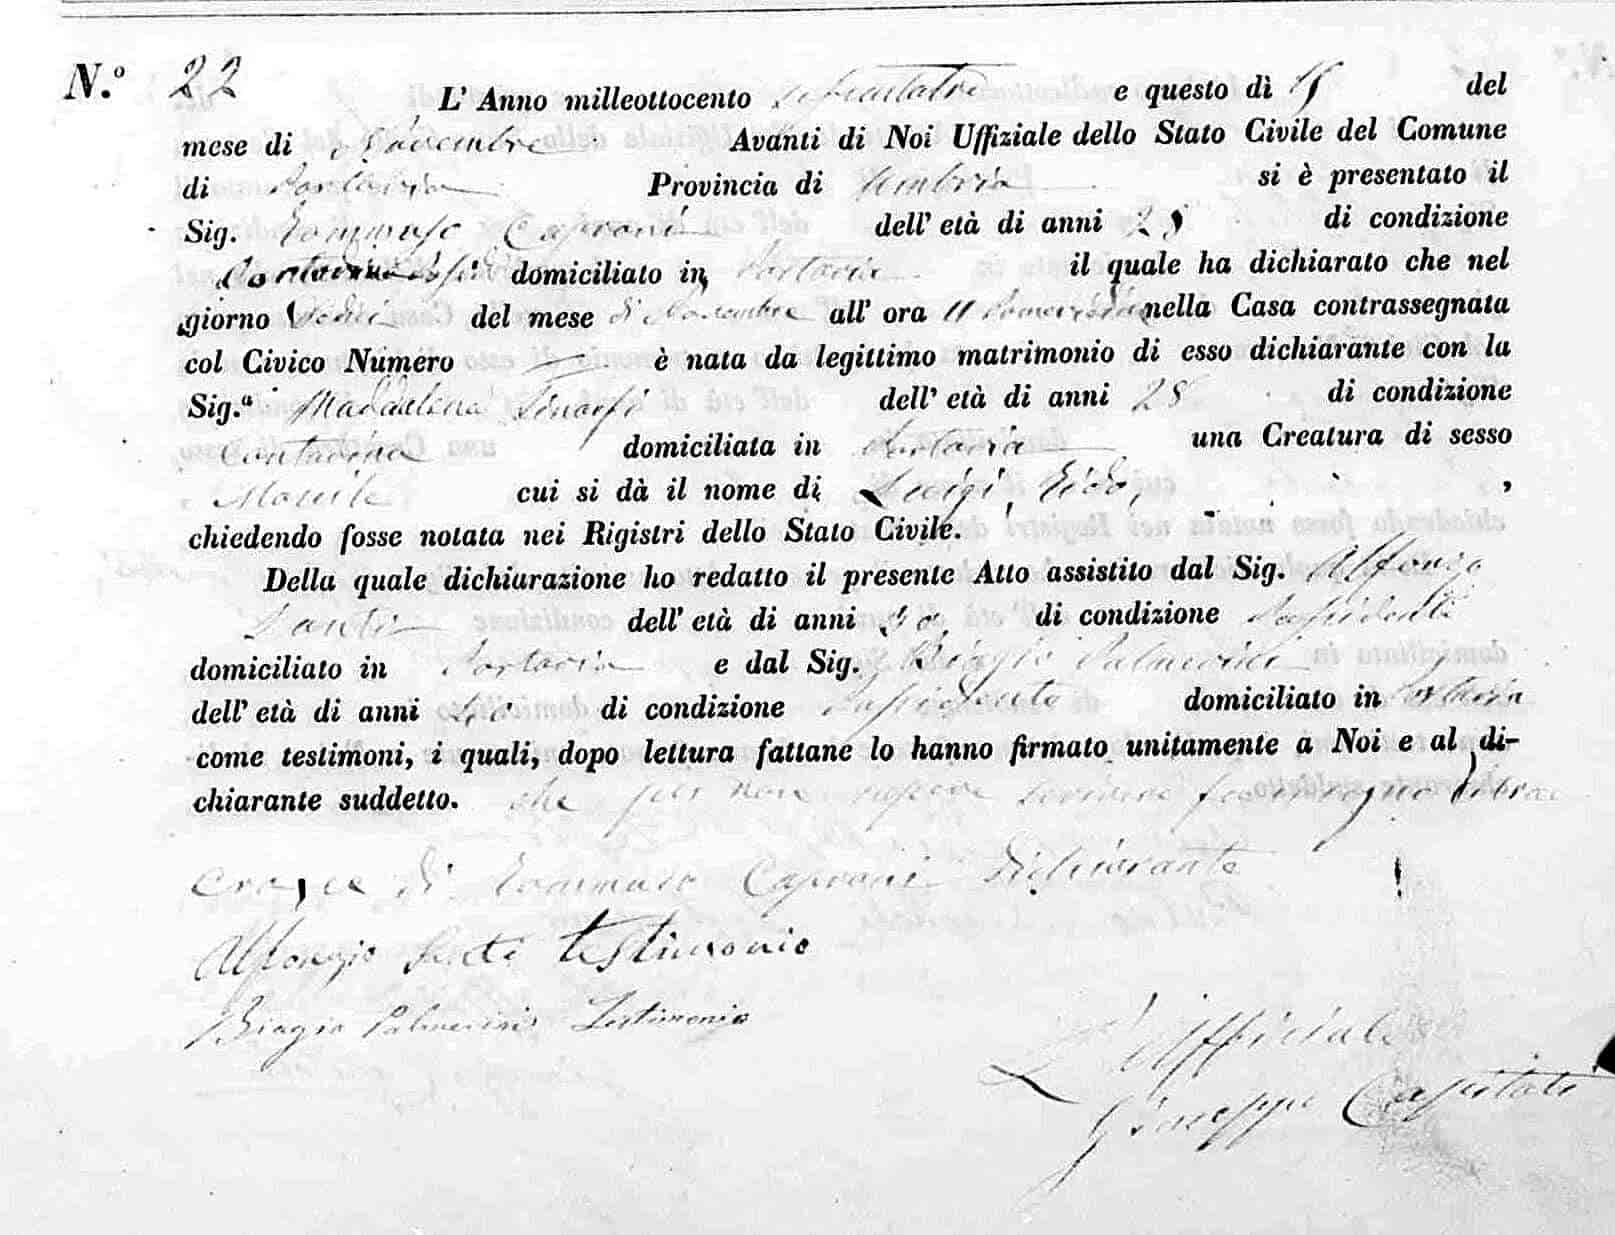 N.º 22
L' Anno milleottocento settantatre e questo dì del
mese di Novembre Avanti di Noi Uffiziale dello Stato Civile del Comune
di Portaria Provincia di Umbria si è presentato il
Sig. Tommaso Caproni dell' età di anni di condizione
domiciliato in Portaria il quale ha dichiarato che nel
giorno del mese di Novembre all' ora 11 Pomeridiane nella Casa contrassegnata
col Civico Numero — è nata da legittimo matrimonio di esso dichiarante con la
Sig.ª Maddalena dell' età di anni 28 di condizione
Contadina domiciliata in Portaria una Creatura di sesso
cui si dà il nome di Luigi, ,
chiedendo fosse notata nei Rigistri dello Stato Civile.
Della quale dichiarazione ho redatto il presente Atto assistito dal Sig. Alfonzo
dell' età di anni di condizione Possidente
domiciliato in Portaria e dal Sig. Biagio Palmerini
dell' età di anni di condizione Possidente domiciliato in Portaria
come testimoni, i quali, dopo lettura fattane lo hanno firmato unitamente a Noi e al di-
chiarante suddetto. che per non sapere scrivere fece il segno di
croce di Tommaso Caproni Dichiarante
Alfonzio testimonio
Biagio Palmerini Testimonio
L' Ufficiale
Giuseppe Capitati